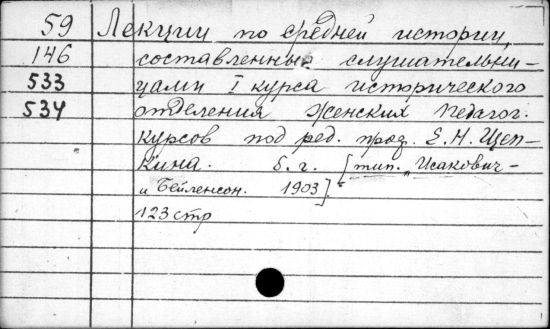 59 Лекции по средней истории,
146 составленные слушательни-
533 цами I курса исторического
534 отделения Женских Педагог.
курсов под ред. проф. Е. Н. Щеп-
кина. б. г. [тип. Исакович-
и Бейленсон. 1903].
123 стр